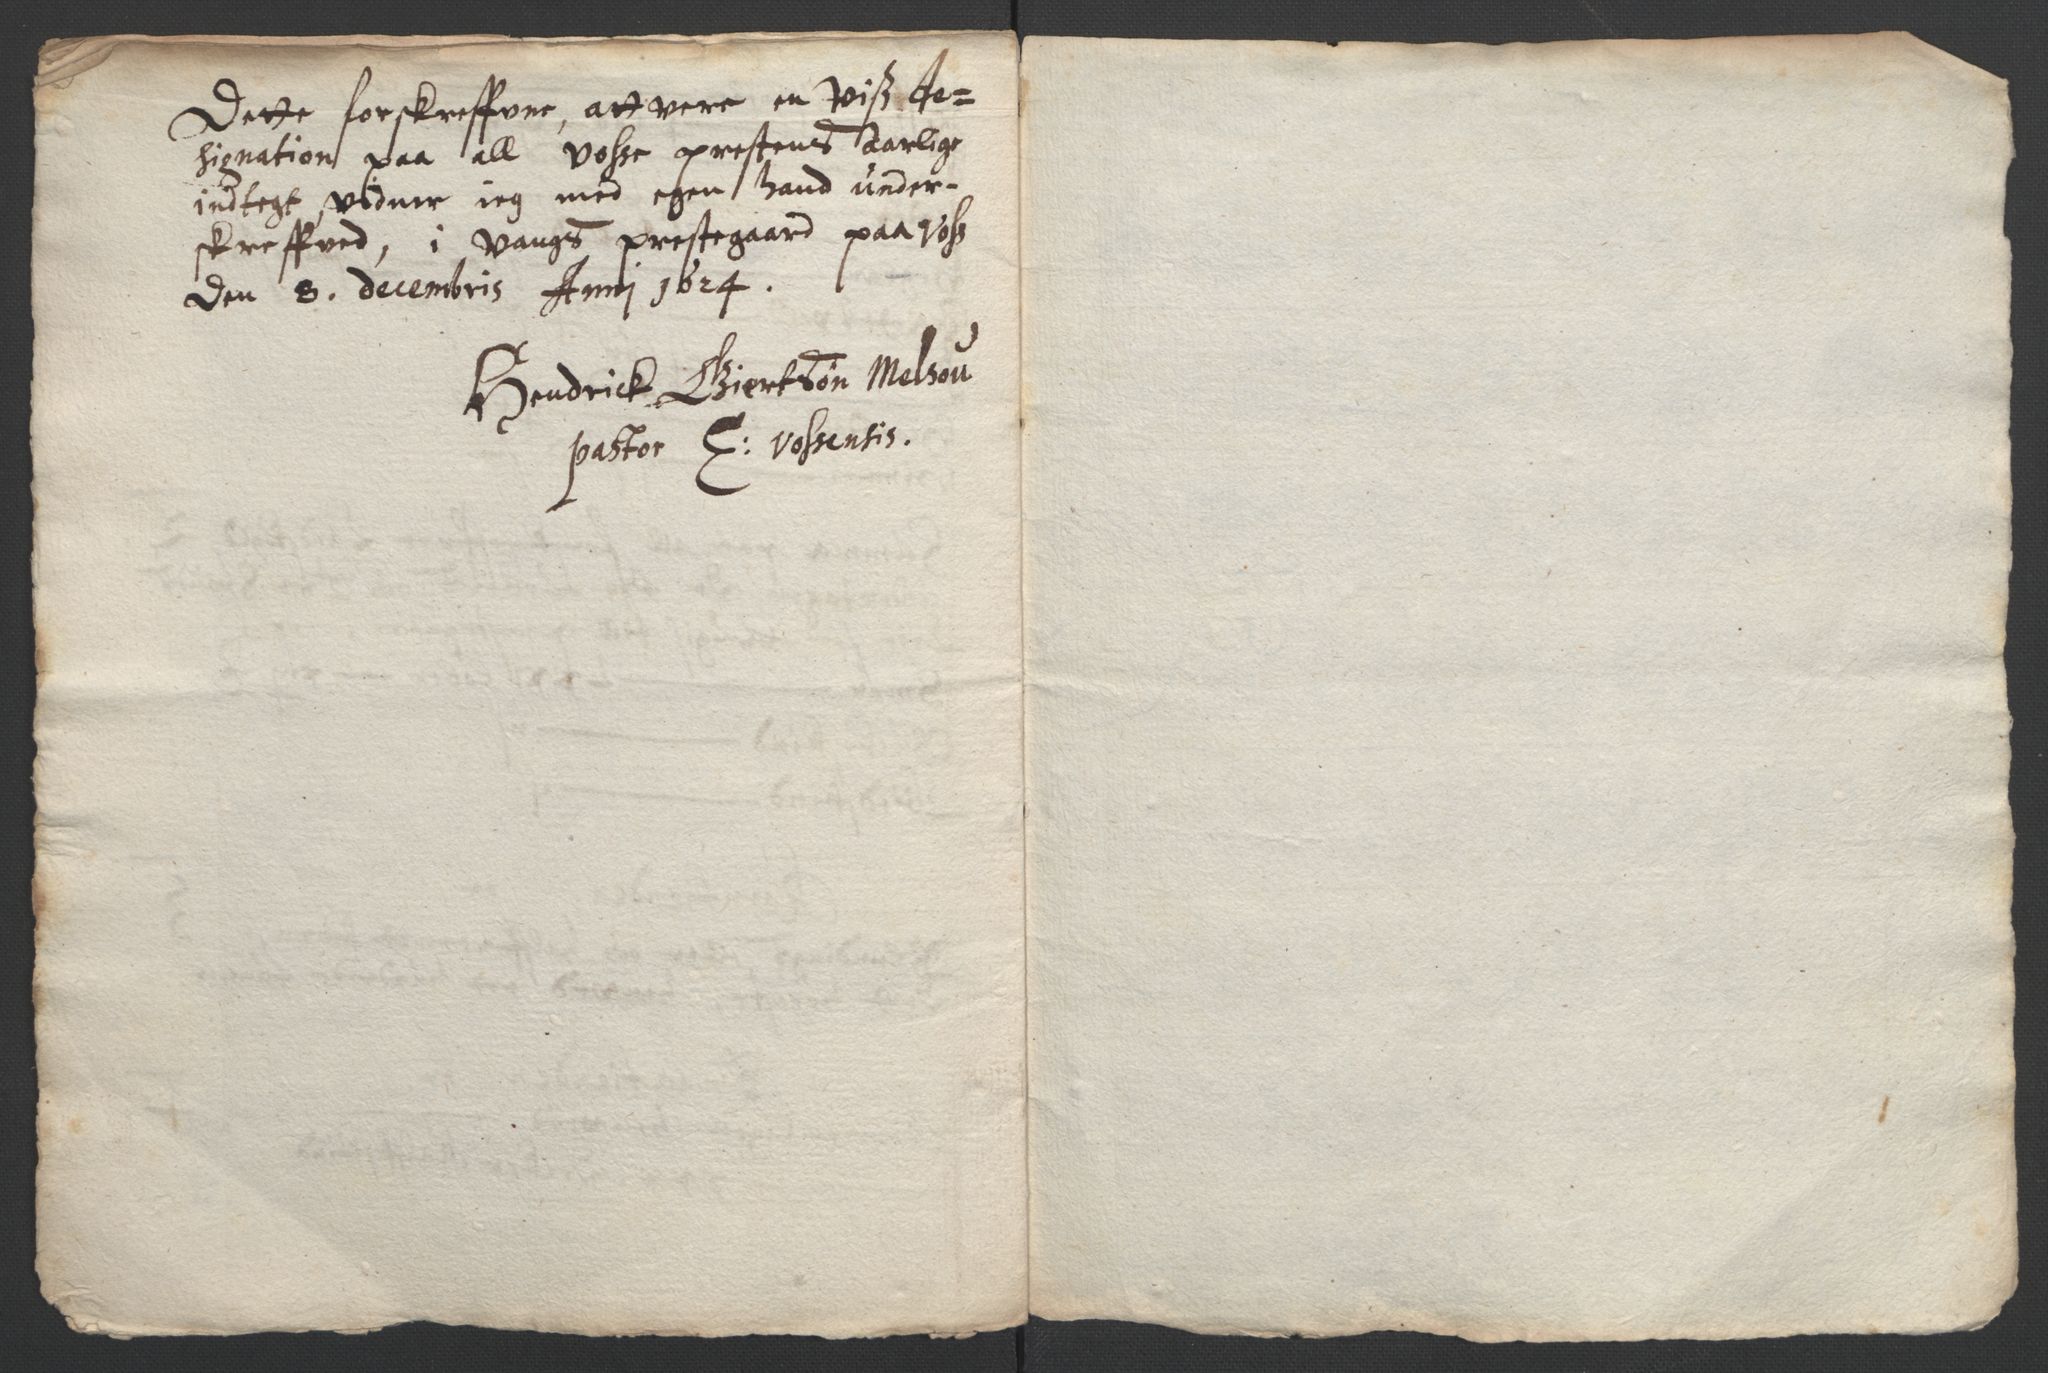 Dette forskreffvne, att vere en viß de=
signation paa all vosse prestens aarlige
indtegt, vidner ieg med egen hand under-
skreffved, i vangs prestegaard paa Voß
Den 8. decembris Anni 1624.
Hendrick Giertsøn Melsou
pastor E: vossensis.